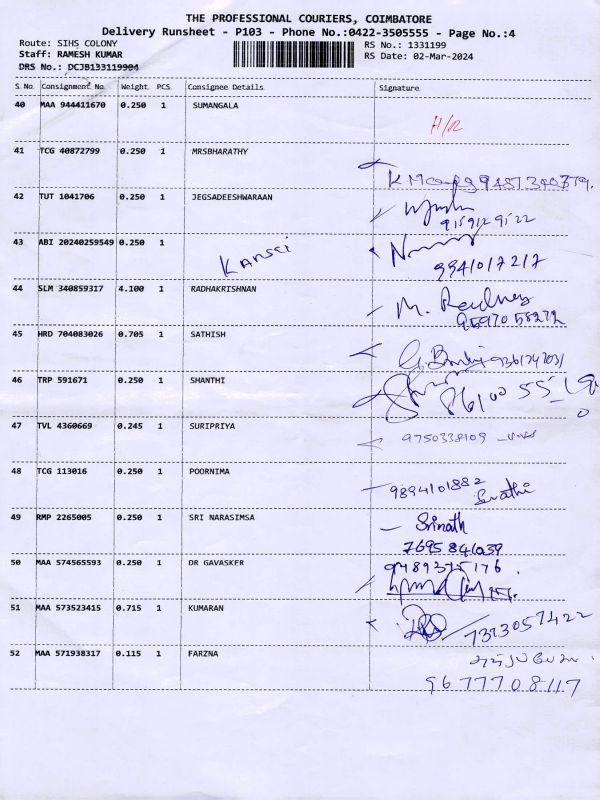 THE PROFESSIONAL COURIERS, COIMBATORE
Delivery Runsheet - P103 - Phone No.:0422-3505555 - Page No.:4
Route: SIHS COLONY
RS No.: 1331199
Staff: RAMESH KUMAR
RS Date: 02-Mar-2024
DRS No.: DCJB133119904
S.No. Consignment No. Weight PCS Consignee Details Signature
40 MAA 944411670 0.250 1 SUMANGALA
41 TCG 40872799 0.250 1 MRSBHARATHY
42 TUT 1041706 0.250 1 JEGSADEESHWARAAN
9159129522
43 ABI 20240259549 0.250 1
9941017217
44 SLM 340859317 4.100 1 RADHAKRISHNAN M.
9597058272
45 HRD 704083026 0.705 1 SATHISH
46 TRP 591671 0.250 1 SHANTHI
47 TVL 4360669 0.245 1 SURIPRIYA 9750338109
48 TCG 113016 0.250 1 POORNIMA 9894101882
Swathi
49 RMP 2265005 0.250 1 SRI NARASIMSA Srinath
7695846039
50 MAA 574565593 0.250 1 DR GAVASKER 9489375176
51 MAA 573523415 0.715 1 KUMARAN 7373057422
52 MAA 571938317 0.115 1 FARZNA
9677708117